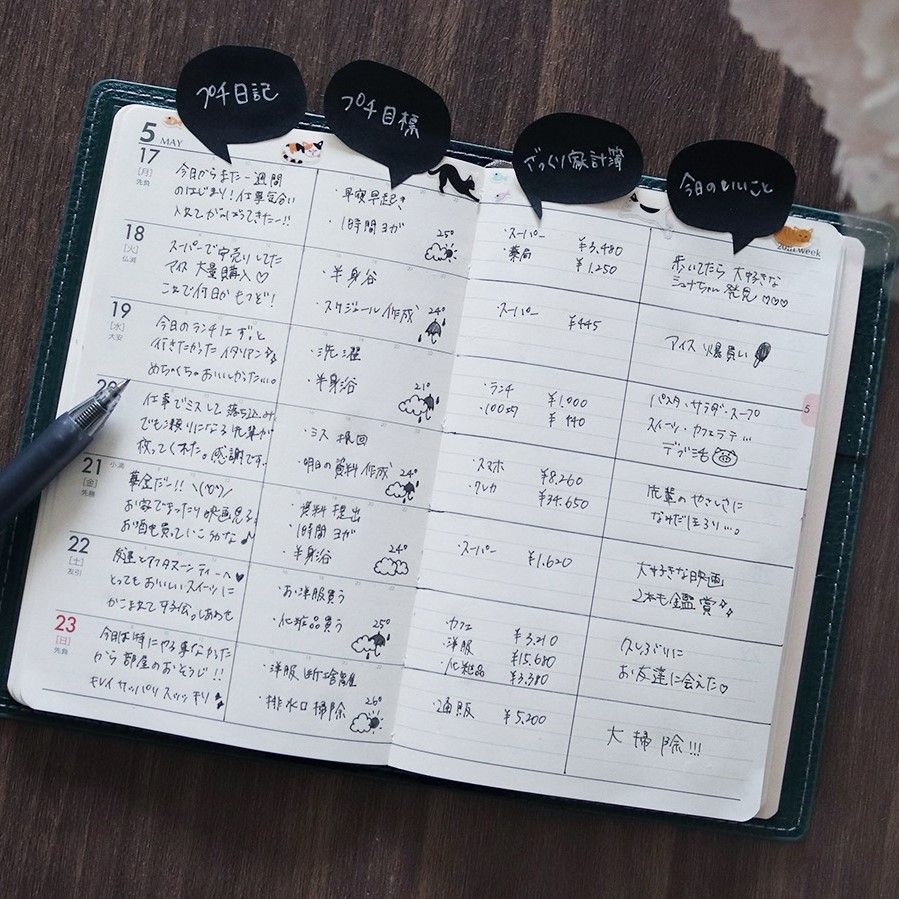 プチ日記
プチ目標
ざっくり家計簿
今日のいいこと
5 MAY
20th week
17
[月]
先負
今日からまた一週間
のはじまり!仕事気合い
入れてがんばってきたー!!
・早寝早起き
・1時間ヨガ
25°
・スーパー ¥3,480
・薬局 ¥1,250
歩いてたら大好きな
発見♡♡♡
18
[火]
仏滅
スーパーで安売りしてた
アイス大量購入♡
これで何日かもつぞ!
・半身浴
・スケジュール作成
24°
・スーパー ¥445
アイス爆買い
19
[水]
大安
今日のランチはずっと
行きたかったイタリアン
めちゃくちゃおいしかった...。
・洗濯
・半身浴
21°
・ランチ ¥1,000
・100均 ¥440
パスタ・サラダ・スープ
スイーツ・カフェラテ...
デブ活
5
仕事でミスして落ち込み
でも頼りになる先輩が
救ってくれた。感謝です。
・ミス挽回
・明日の資料作成
24°
・スマホ ¥8,260
・クレカ ¥34,650
先輩のやさしさに
なみだほろり...。
21
小満
[金]
先勝
華金だー!! \(^o^)/
お家でまったり映画見る
お酒も買っていこうかな♪
・資料提出
・1時間ヨガ
・半身浴
24°
・スーパー ¥1,620
大好きな映画
2本も鑑賞
22
[土]
友引
友達とアフタヌーンティーへ♥
とってもおいしいスイーツに
かこまれて しあわせ
・お洋服買う
・化粧品買う
25°
・カフェ ¥3,210
・洋服 ¥15,680
・化粧品 ¥3,380
久しぶりに
お友達に会えた♡
23
[日]
先負
今日は特にやる事なかった
から部屋のおそうじ!!
キレイサッパリスッキリ
・洋服断捨離
・排水口掃除
26°
・通販 ¥5,200
大掃除!!!